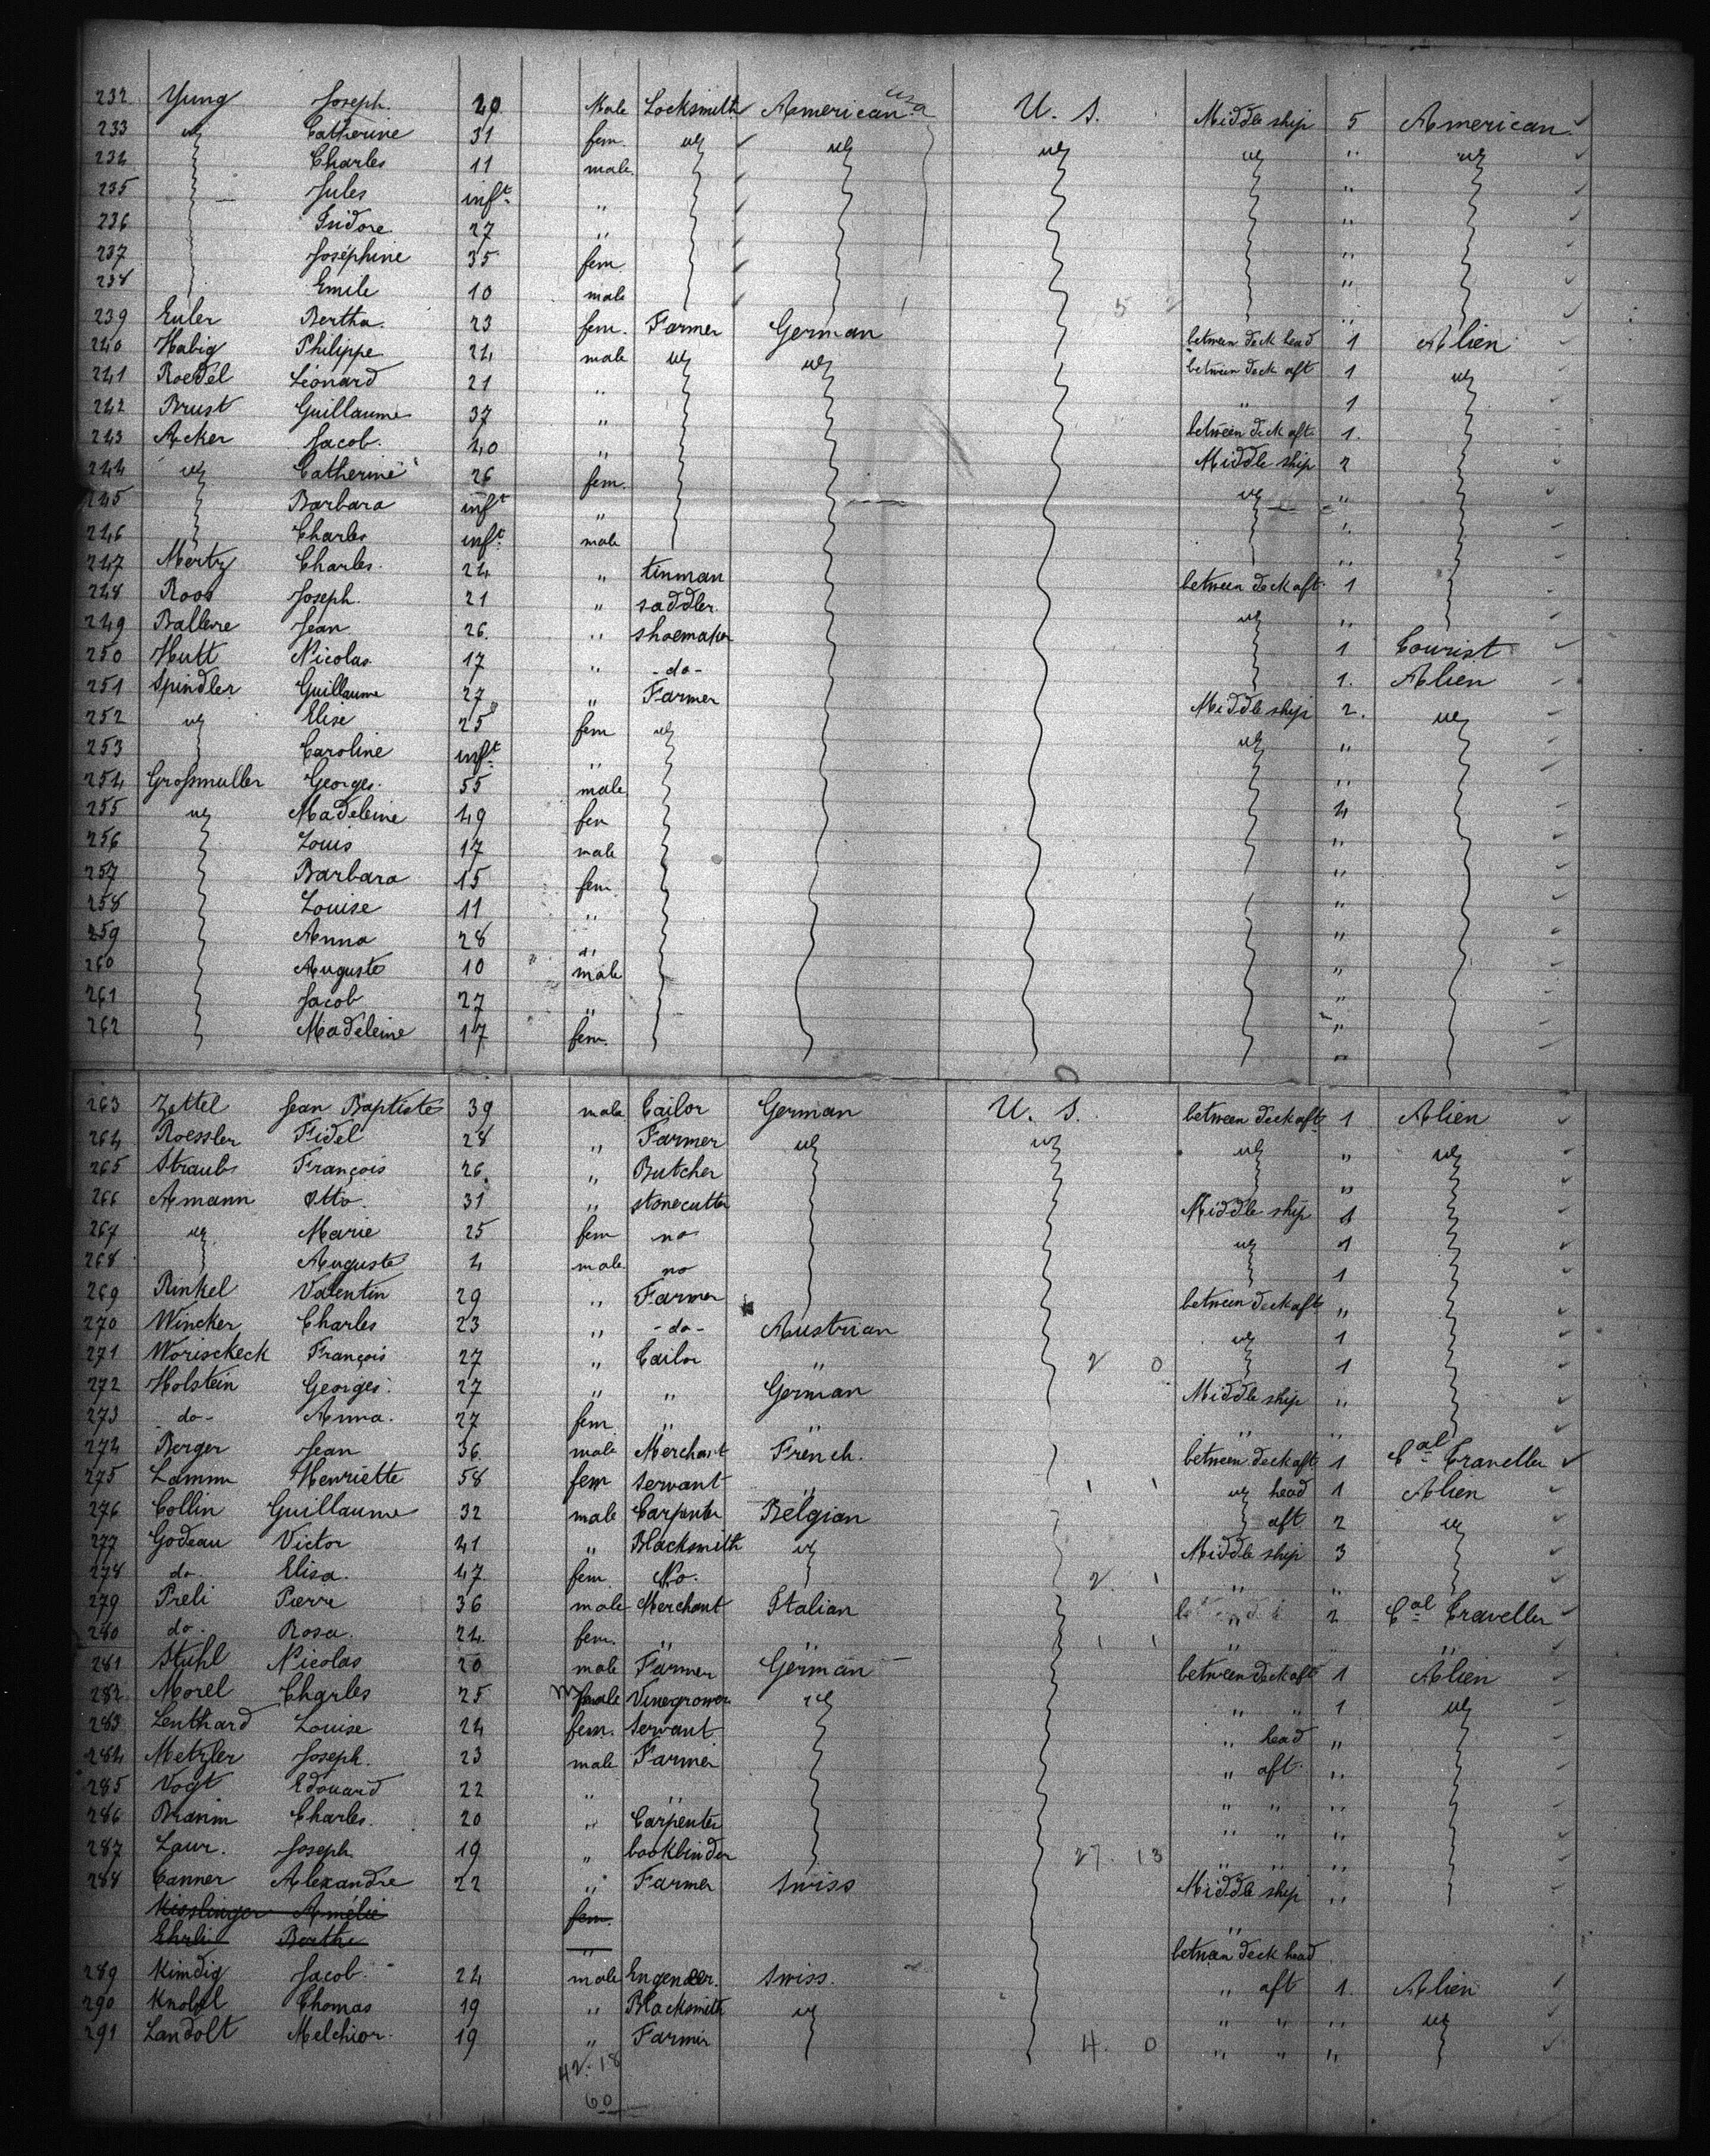 232 Yung Joseph. 20 Male Locksmith American usa U. S. Middle ship 5 American
233 " Catherine 31 fem. " " " " " "
234 Charles 11 male. "
235 Jules inft. " "
236 Isidore 27 " "
237 Joséphine 35 fem. "
238 Emile 10 male "
239 Euler Bertha. 23 fem. Farmer German between deck head 1 Alien
240 Habig Philippe 24 male " " between deck aft 1 "
241 Roedel Léonard 21 " " 1
242 Brust Guillaume 37 " between deck aft. 1.
243 Acker Jacob. 40 " Middle ship 2
244 " Catherine 26 fem. " "
245 Barbara inft " "
246 Charles inft. male "
247 Mertz Charles. 24 " tinman between deck aft. 1
248 Roos Joseph. 21 " saddler. " "
249 Jean 26. " shoemaker 1 Tourist
250 Hutt Nicolas 17 " -do- 1. Alien
251 Spindler Guillaume 27 " Farmer Middle ship 2. "
252 " Elise 25 fem " " "
253 Caroline inft. " "
254 Großmuller Georges. 55 male. 4
255 " Madeleine 49 fem "
256 Louis 17 male "
257 Barbara 15 fem. "
258 Louise 11 " "
259 Anna 28 " "
260 Auguste 10 male "
261 Jacob 27 " "
262 Madeleine 17 fem. "
263 Zettel Jean Baptiste 39 male Tailor German U. S. between deck aft. 1 Alien
264 Roessler Fidel 28 " Farmer " " " " "
265 Straub François 26. " Butcher "
266 Amann Otto. 31 " stonecutter Middle ship 1
267 " Marie 25 fem no " 1
268 Auguste 4 male. no 1
269 Rinkel Valentin 29 " Farmer between deck aft "
270 Wincker Charles 23 " -do- Austrian " 1
271 Worisckeck François 27 " Tailor " 2 0 1
272 Holstein Georges. 27 " " German Middle ship "
273 -do- Anna. 27 fem. " " " "
274 Berger Jean 36. male Merchant French. between deck aft 1 Cal Traveller
275 Lamm Henriette 58 fem servant " 1 1 " head 1 Alien
276 Collin Guillaume 32 male Carpenter Belgian aft 2 "
277 Godeau Victor 41 " Blacksmith " Middle ship 3
278 do. Elisa. 47 fem. No. 2. 1 " "
279 Preli Pierre 36 male Merchant Italian 2 Cal Traveller
280 do. Rosa. 24 fem. " " 1 1 " "
281 Stuhl Nicolas 20 male Farmer German between deck aft 1 Alien
282 Morel Charles 25 male Vinegrower " " " 1. "
283 Lenthard Louise 24 fem. Servant " head "
284 Metzler Joseph. 23 male Farmer " aft. "
285 Vogt Edouard 22 " " " " "
286 Charles. 20 " Carpenter " " "
287 Laur. Joseph. 19 " bookbinder 27. 13 " " "
288 Tanner Alexandre 22 " Farmer Swiss Middle ship "
Kisslinger Amélie fem. "
Ehrli Berthe " between deck head
289 Kimdig Jacob. 24 male Engeneer. Swiss. " aft 1. Alien
290 Knobel Thomas 19 " Blacksmith " " " " "
291 Landolt Melchior. 19 " Farmer 4. 0 " " "
42. 18
60